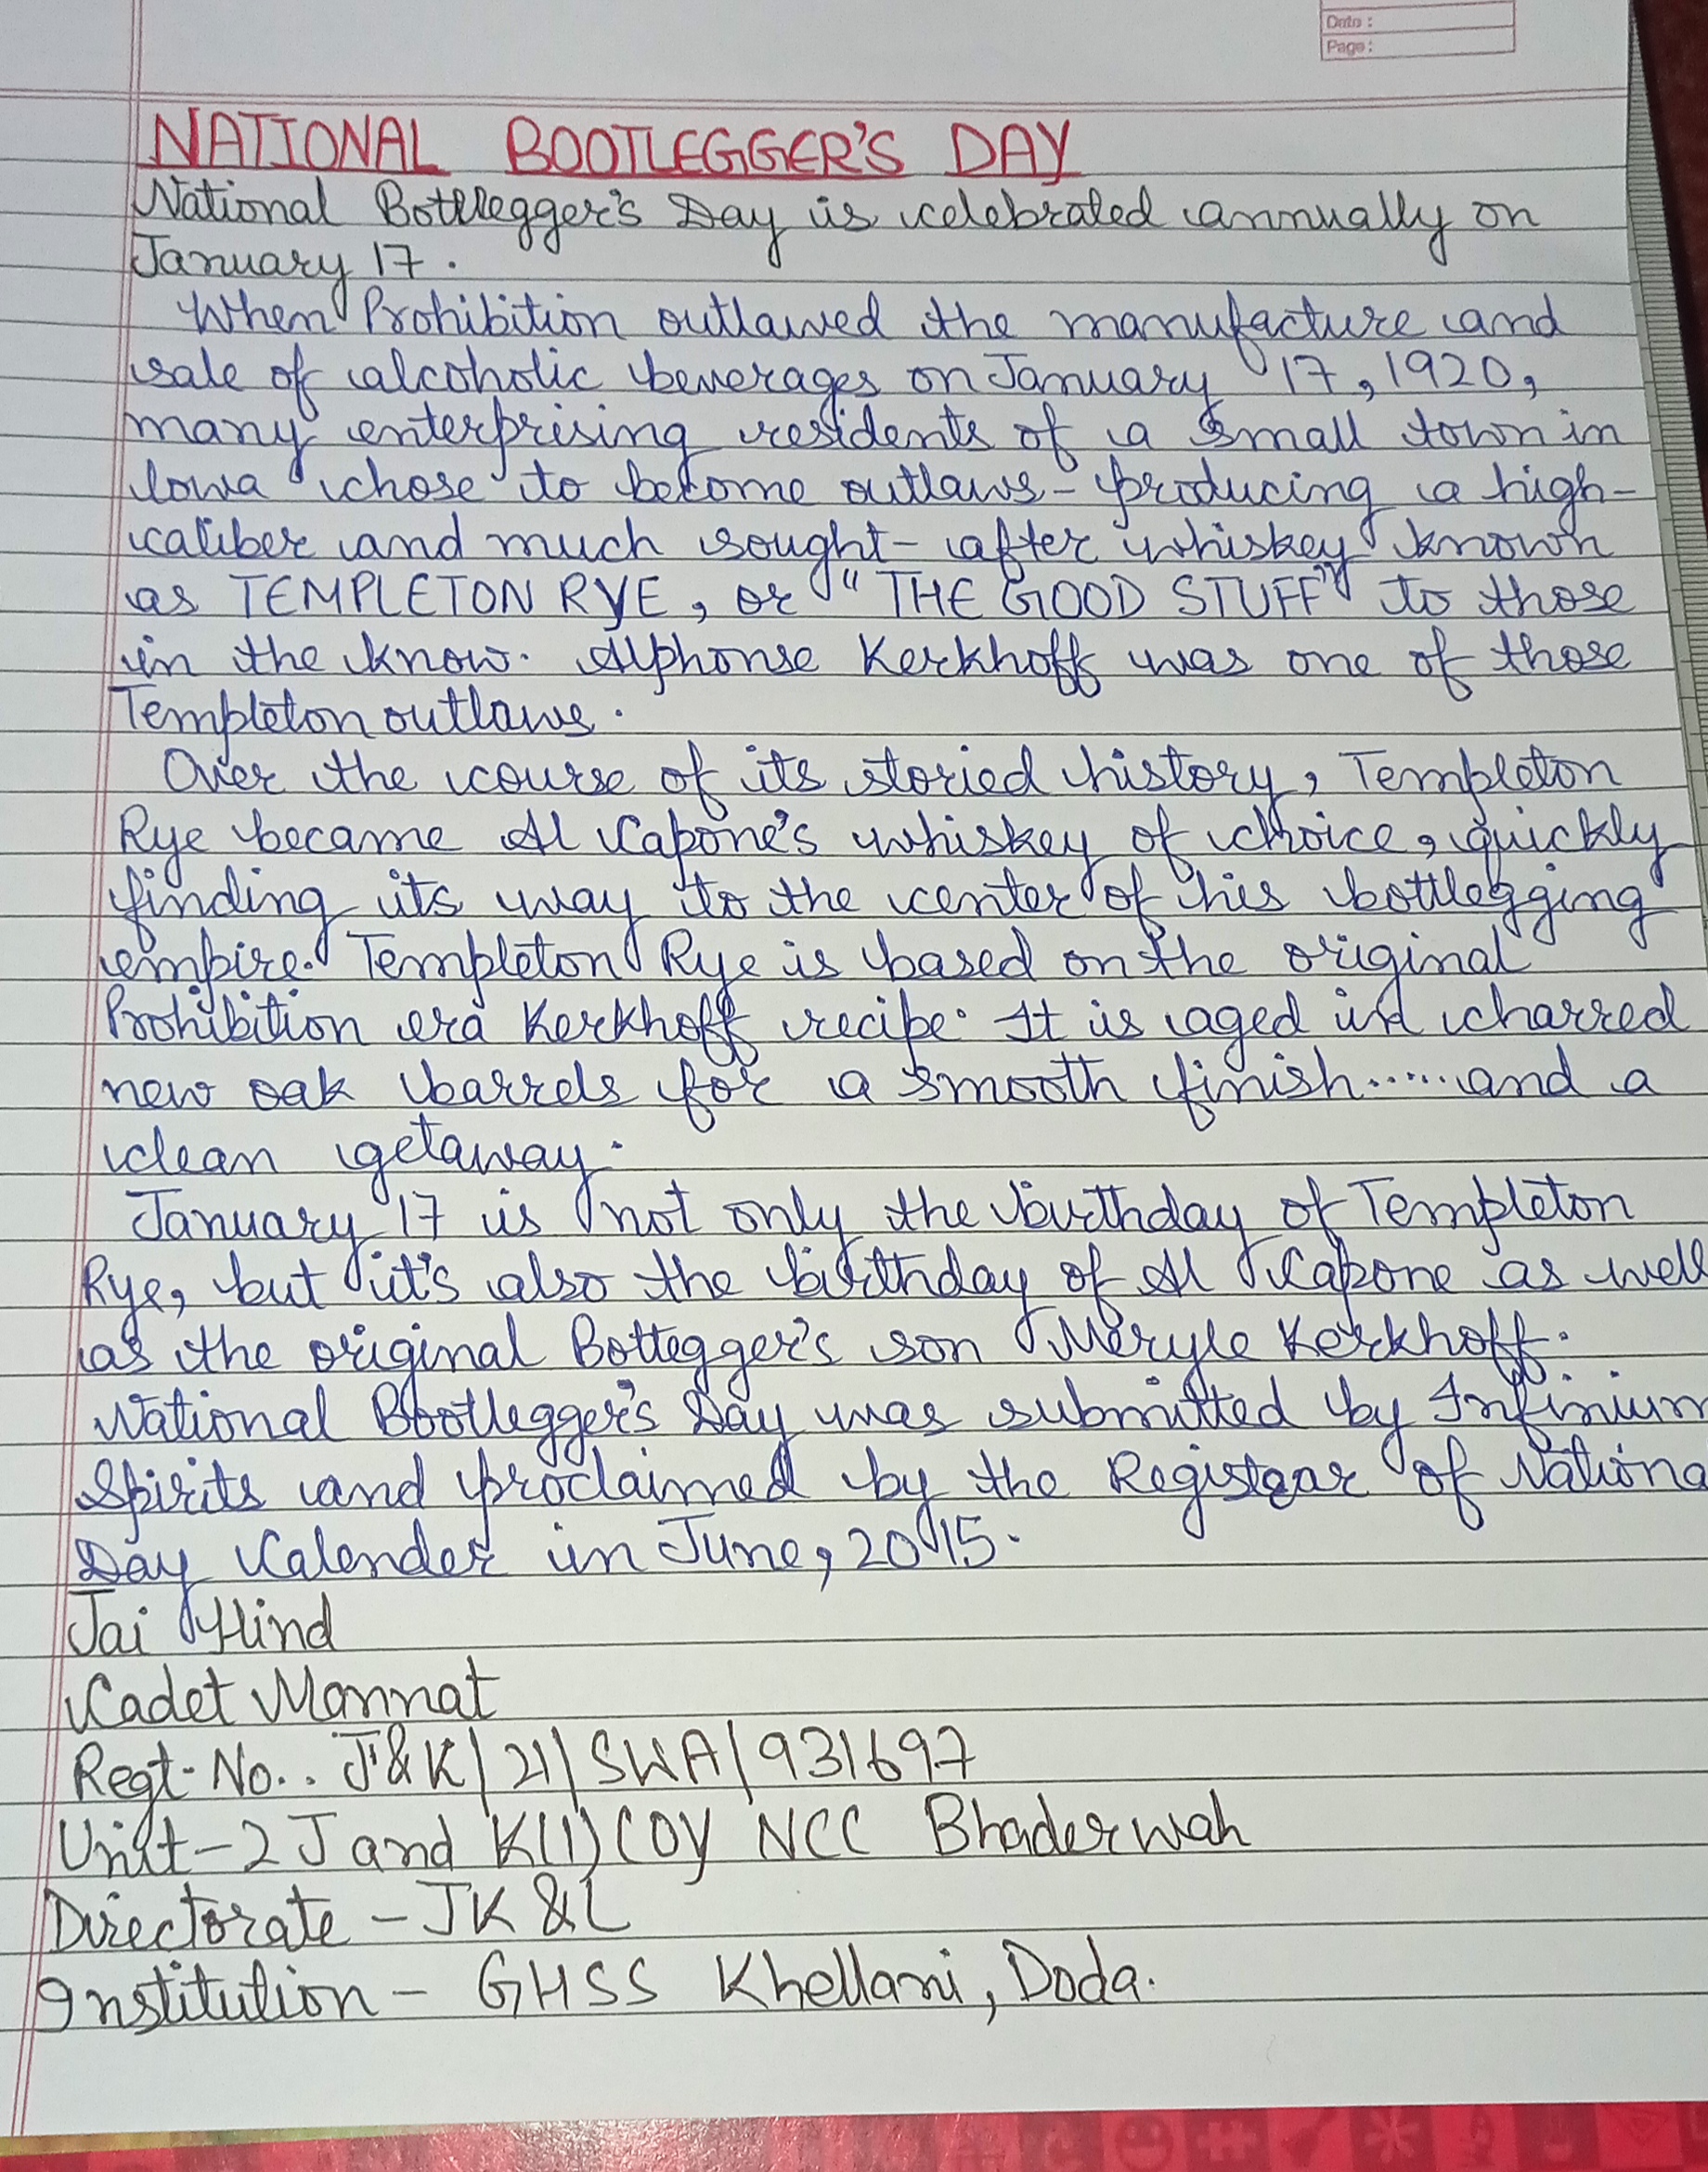 Date :
Page :
NATIONAL BOOTLEGGER'S DAY
National Bottlegger's Day is celebrated annually on
January 17.
When Prohibition outlawed the manufacture and
sale of alcoholic beverages on January 17, 1920,
many enterprising residents of a small town in
Iowa chose to become outlaws - producing a high-
caliber and much sought- after whiskey known
as TEMPLETON RYE, or "THE GOOD STUFF" to those
in the know. Alphonse Kerkhoff was one of those
Templeton outlaws.
Over the course of its storied history, Templeton
Rye became Al Capone's whiskey of choice, quickly
finding its way to the center of his bottlegging
empire. Templeton Rye is based on the original
Prohibition era Kerkhoff recipe. It is aged in charred
new oak barrels for a smooth finish.....and a
clean getaway.
January 17 is not only the birthday of Templeton
Rye, but it's also the birthday of Al Capone as well
as the original Bottegger's son Meryle Kerkhoff.
National Bootlegger's Day was submitted by Infinium
Spirits and proclaimed by the Registrar of Nationa
Day Calender in June, 2015.
Jai Hind
Cadet Mannat
Regt. No.. J&K/21/SWA/931697
Unit-2 J and K(1)COY NCC Bhaderwah
Directorate - JK &L
Institution - GHSS Khellani, Doda.